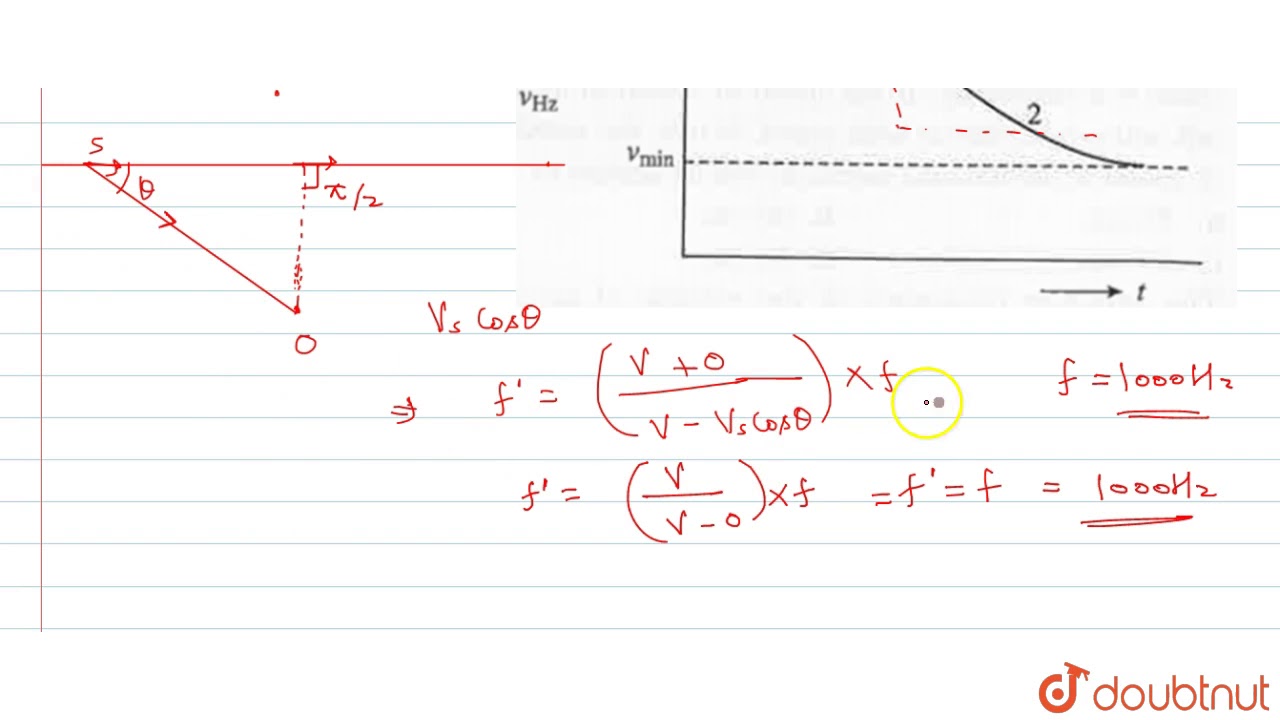 ν_Hz
2
ν_min
t
S
θ
π/2
O
V_s cosθ
⇒ f' = (V + 0 / V - V_s cosθ) × f
f = 1000 Hz
f' = (V / V - 0) × f = f' = f = 1000 Hz
doubtnut